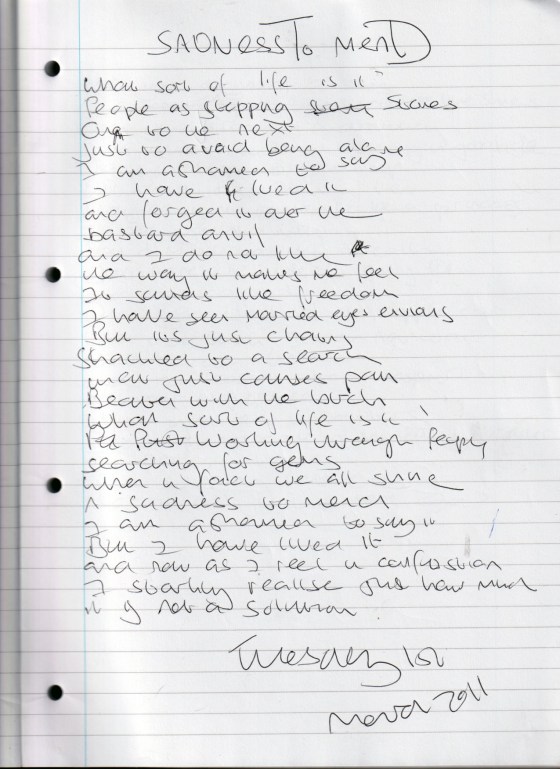 SADNESS To MenD
What sort of life is it
People as stepping Stones
One to the next
Just to avoid being alone
I am ashamed to say
I have lived it
and forged it over the
bastard anvil
and I do not like
the way it makes me feel
It sounds like freedom
I have seen Married eyes envious
But its just chains
Shackled to a search
that just causes pain
Beaten with the birch
What sort of life is it
Working through People
searching for gems
when in fact we all shine
A sadness to mend
I am ashamed to say it
But I have lived it
and now as I reel in confession
I starkly realise just how much
it is not a solution
Tuesday 1st
March 2011